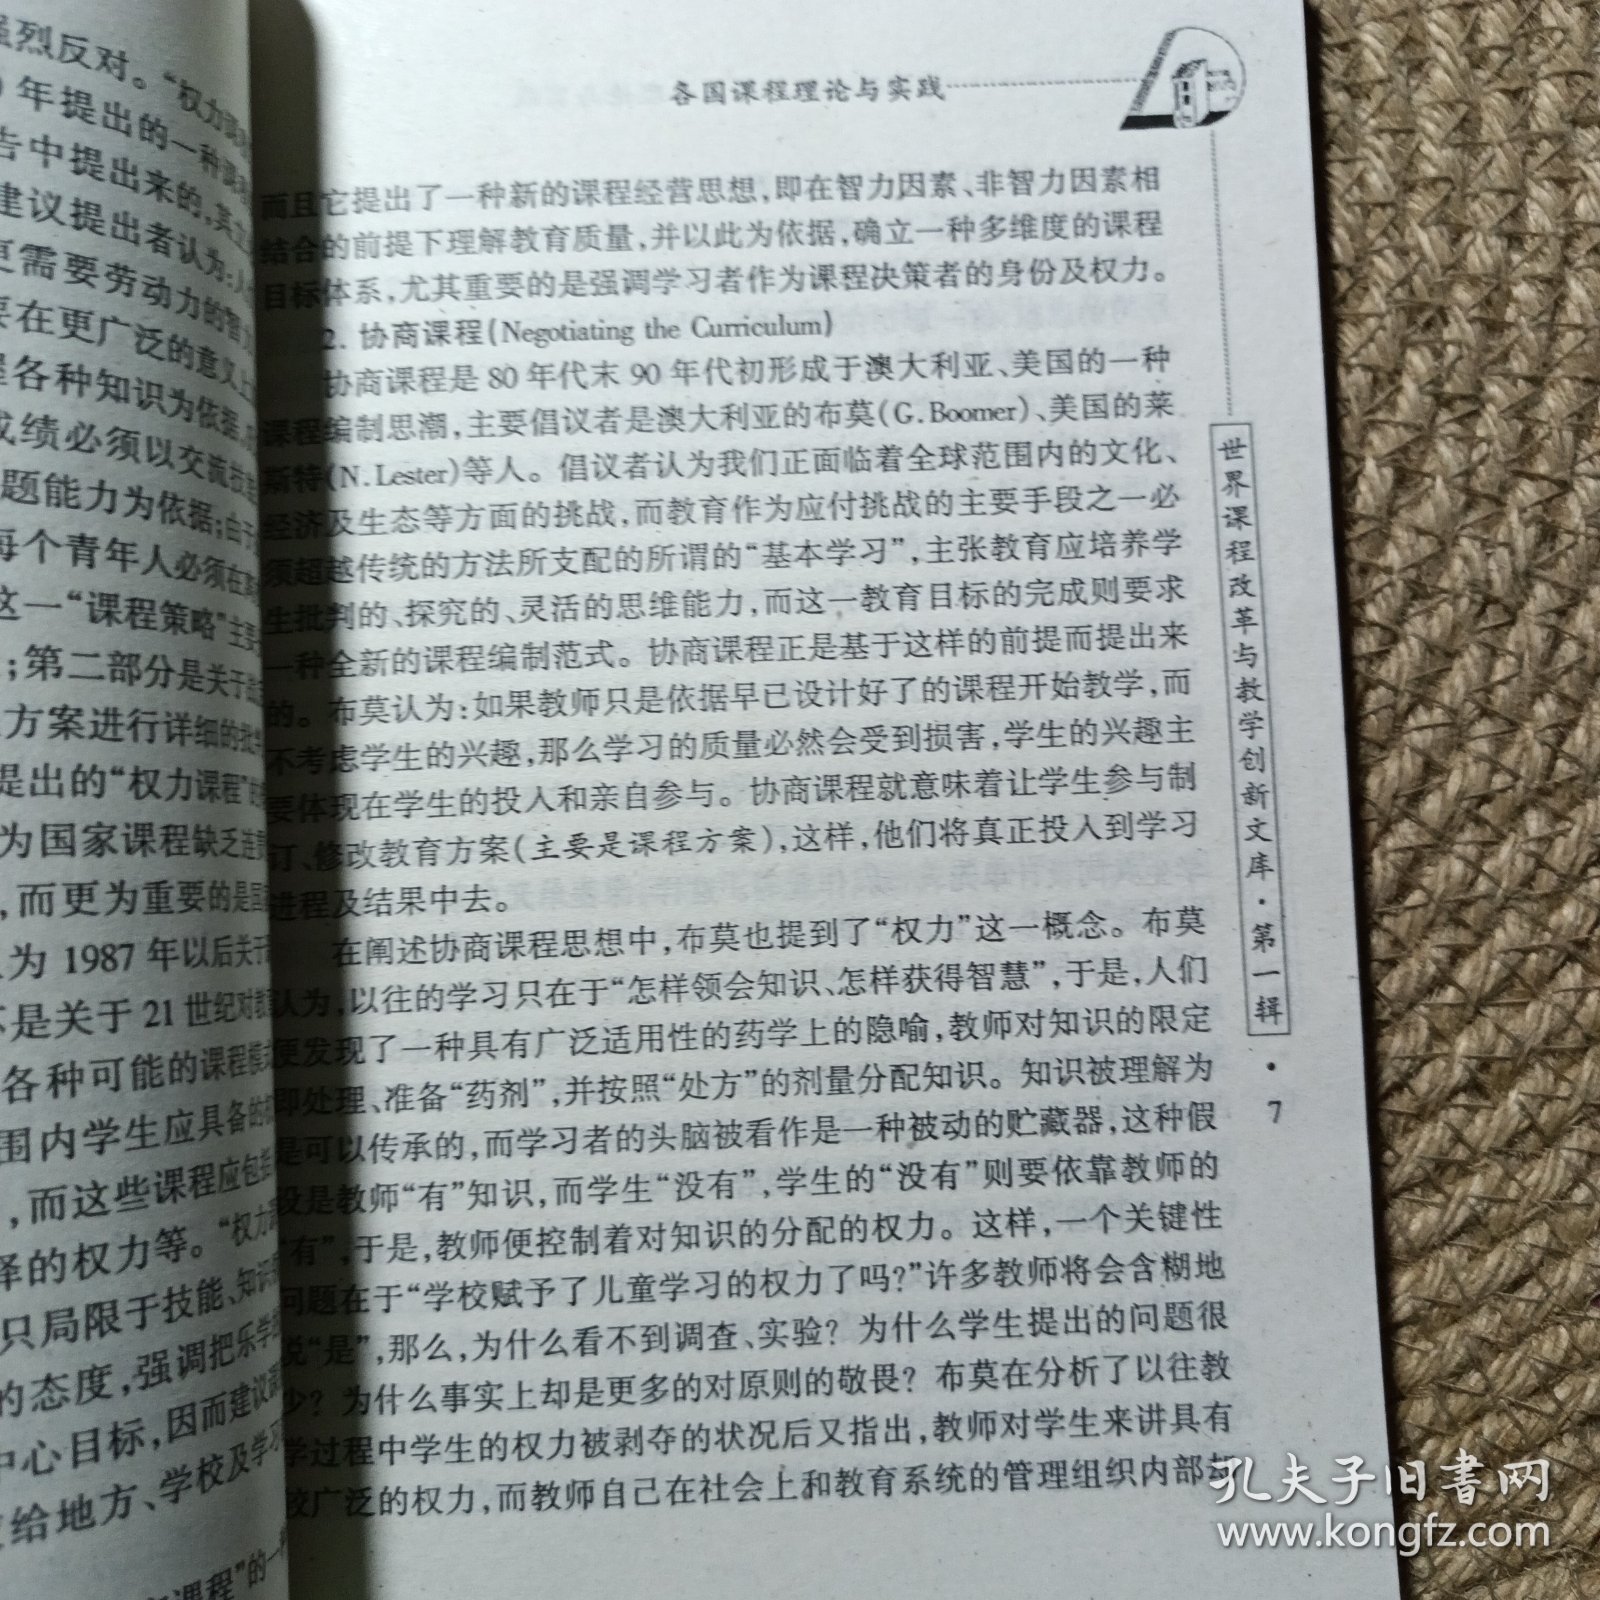 强烈反对。“权力课
年提出的一种课
告中提出来的,其
建议提出者认为:人
更需要劳动力的智
要在更广泛的意义上
各种知识为依据
成绩必须以交流技
题能力为依据;由于
每个青年人必须在
这一“课程策略”主要
;第二部分是关于
方案进行详细的批
提出的“权力课程”的
为国家课程缺乏连
,而更为重要的是国
为 1987 年以后关于
不是关于 21 世纪对教
各种可能的课程模式
围内学生应具备的
,而这些课程应包括
择的权力等。“权力课
只局限于技能、知识
的态度,强调把乐学
中心目标,因而建议
给地方、学校及学习
课程”的一
各国课程理论与实践
而且它提出了一种新的课程经营思想,即在智力因素、非智力因素相
结合的前提下理解教育质量,并以此为依据,确立一种多维度的课程
目标体系,尤其重要的是强调学习者作为课程决策者的身份及权力。
2. 协商课程(Negotiating the Curriculum)
协商课程是 80 年代末 90 年代初形成于澳大利亚、美国的一种
课程编制思潮,主要倡议者是澳大利亚的布莫(G. Boomer)、美国的莱
斯特(N. Lester)等人。倡议者认为我们正面临着全球范围内的文化、
经济及生态等方面的挑战,而教育作为应付挑战的主要手段之一必
须超越传统的方法所支配的所谓的“基本学习”,主张教育应培养学
生批判的、探究的、灵活的思维能力,而这一教育目标的完成则要求
一种全新的课程编制范式。协商课程正是基于这样的前提而提出来
的。布莫认为:如果教师只是依据早已设计好了的课程开始教学,而
不考虑学生的兴趣,那么学习的质量必然会受到损害,学生的兴趣主
要体现在学生的投入和亲自参与。协商课程就意味着让学生参与制
订、修改教育方案(主要是课程方案),这样,他们将真正投入到学习
进程及结果中去。
在阐述协商课程思想中,布莫也提到了“权力”这一概念。布莫
认为,以往的学习只在于“怎样领会知识、怎样获得智慧”,于是,人们
便发现了一种具有广泛适用性的药学上的隐喻,教师对知识的限定
即处理、准备“药剂”,并按照“处方”的剂量分配知识。知识被理解为
是可以传承的,而学习者的头脑被看作是一种被动的贮藏器,这种假
设是教师“有”知识,而学生“没有”,学生的“没有”则要依靠教师的
“有”,于是,教师便控制着对知识的分配的权力。这样,一个关键性
问题在于“学校赋予了儿童学习的权力了吗?”许多教师将会含糊地
说“是”,那么,为什么看不到调查、实验?为什么学生提出的问题很
少?为什么事实上却是更多的对原则的敬畏?布莫在分析了以往教
学过程中学生的权力被剥夺的状况后又指出,教师对学生来讲具有
较广泛的权力,而教师自己在社会上和教育系统的管理组织内部却
世界课程改革与教学创新文库·第一辑
·7
孔夫子旧书网
www.kongfz.com